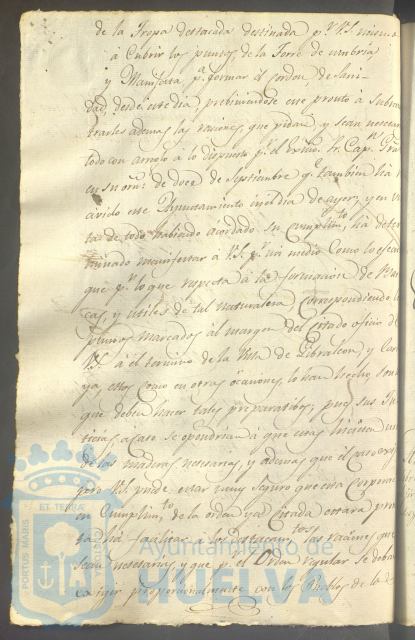 de la Tropa destacada destinada pr. V.S. mismo
á Cubrir los puntos, de la Torre de umbria
y Manfota pa. formar el cordon, de Sani-
dad, desde este dia, previniendose este pronto á Submi
trarles ademas las raciones, que pidan y sean necesar
todo con arreglo á lo dispuesto pr. el Exmo. Sr. Capn. Gral
en su orn. de doce de Septiembre qe. tambien ha
avido este Ayuntamiento en el dia de ayer, y en vis
ta de todo habiendo acordado su cumplimto. ha deter
minado manifestar á V.S. pr. mi medio como lo efec
que pr. lo que respecta á la formacion de
cas, y utiles de tal naturaleza Correspondiendo
puntos marcados al margen del citado oficio de
V.S. á el termino de la Villa de Gibraleon, y Car
ya, estos como en otras ocaciones, lo han hecho, son
que deben hacer tales preparatibos, pues sus Ju
ticias, acaso se opondrian á que estas hiciesen
de las maderas necesarias, y ademas que el
pero V.S. puede estar muy seguro que esta Corporac
en Cumplimto. de la orden ya citada estará pron
ta há facilitar á los Destacamtos. las raciones que
sean necesarias y que pr. el Orden regular se deban
exijir proporcionalmente con los Pueblos de la
PORTUS MARIS
ET TERRAE
Ayuntamiento de
HUELVA